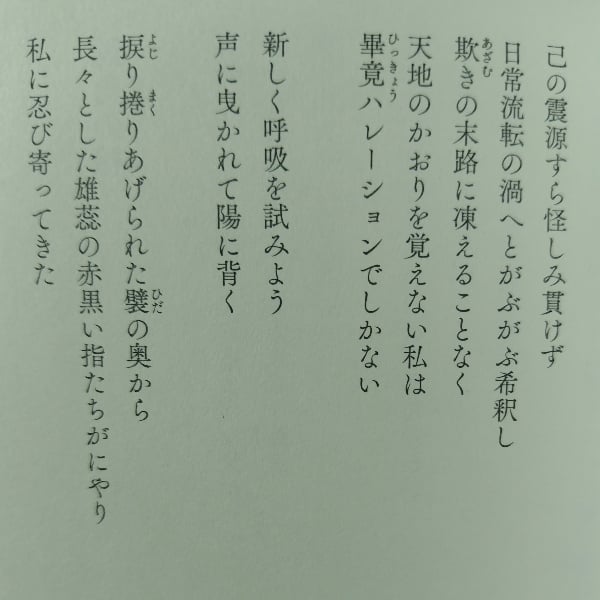 己の震源すら怪しみ貫けず
日常流転の渦へとがぶがぶ希釈し
欺きの末路に凍えることなく
天地のかおりを覚えない私は
畢竟ハレーションでしかない
新しく呼吸を試みよう
声に曳かれて陽に背く
捩り捲りあげられた襞の奥から
長々とした雄蕊の赤黒い指たちがにやり
私に忍び寄ってきた